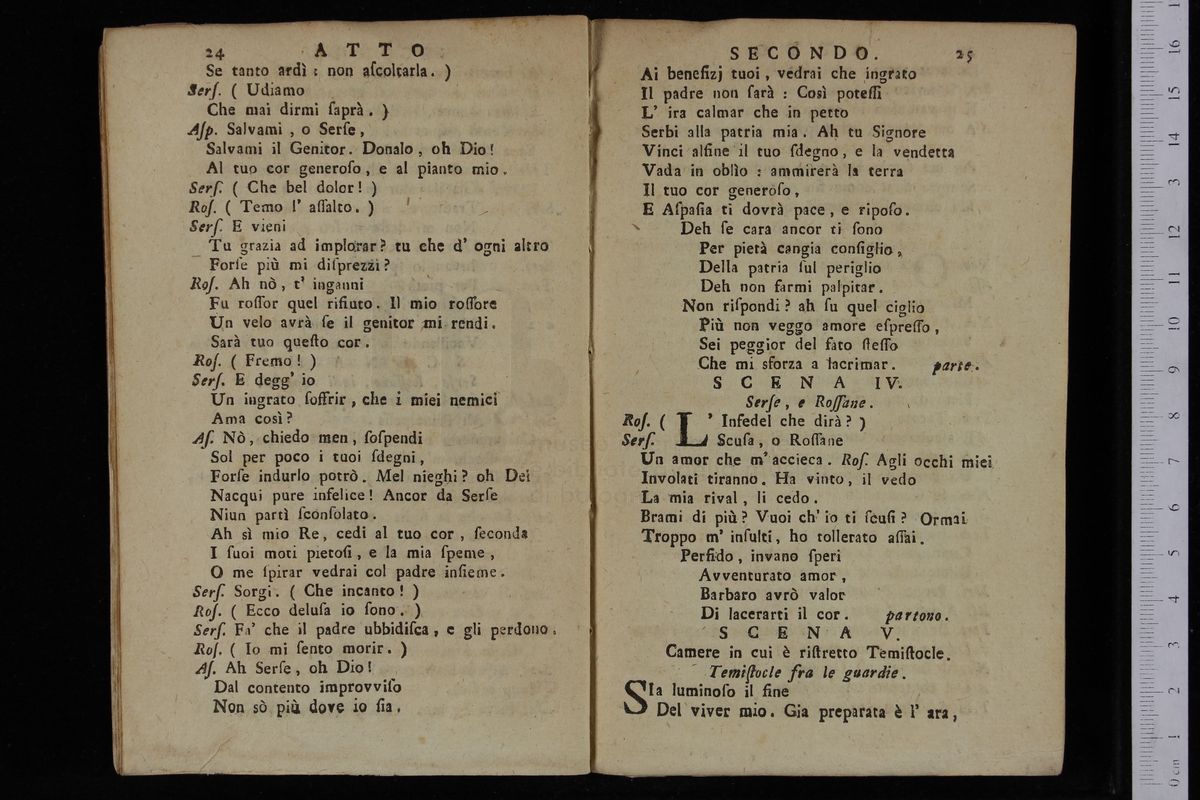 24 ATTO
Se tanto ardì : non aſcoltarla. )
Serſ. ( Udiamo
Che mai dirmi ſaprà. )
Aſp. Salvami , o Serſe,
Salvami il Genitor. Donalo, oh Dio!
Al tuo cor generoſo, e al pianto mio.
Serſ. ( Che bel dolor! )
Roſ. ( Temo l' aſſalto. )
Serſ. E vieni
Tu grazia ad implorar? tu che d' ogni altro
Forſe più mi diſprezzi?
Roſ. Ah nò, t' inganni
Fu roſſor quel rifiuto. Il mio roſſore
Un velo avrà ſe il genitor mi rendi.
Sarà tuo queſto cor.
Roſ. ( Fremo! )
Serſ. E degg' io
Un ingrato ſoffrir, che i miei nemici
Ama così?
Aſ. Nò, chiedo men, ſoſpendi
Sol per poco i tuoi ſdegni,
Forſe indurlo potrò. Mel nieghi? oh Dei
Nacqui pure infelice! Ancor da Serſe
Niun partì ſconſolato.
Ah sì mio Re, cedi al tuo cor, ſeconda
I ſuoi moti pietoſi, e la mia ſpeme,
O me ſpirar vedrai col padre inſieme.
Serſ. Sorgi. ( Che incanto! )
Roſ. ( Ecco deluſa io ſono. )
Serſ. Fa' che il padre ubbidiſca, e gli perdono.
Roſ. ( Io mi ſento morir. )
Aſ. Ah Serſe, oh Dio!
Dal contento improvviſo
Non sò più dove io ſia.
SECONDO. 25
Ai beneſizj tuoi, vedrai che ingrato
Il padre non ſarà : Così poteſſi
L' ira calmar che in petto
Serbi alla patria mia. Ah tu Signore
Vinci alfine il tuo ſdegno, e la vendetta
Vada in oblìo : ammirerà la terra
Il tuo cor generoſo,
E Aſpaſia ti dovrà pace, e ripoſo.
Deh ſe cara ancor ti ſono
Per pietà cangia conſiglio,
Della patria ſul periglio
Deh non farmi palpitar.
Non riſpondi? ah ſu quel ciglio
Più non veggo amore eſpreſſo,
Sei peggior del fato ſteſſo
Che mi sforza a lacrimar. parte.
SCENA IV.
Serſe, e Roſſane.
Roſ. ( L' Infedel che dirà? )
Serſ. Scuſa, o Roſſane
Un amor che m' accieca. Roſ. Agli occhi miei
Involati tiranno. Ha vinto, il vedo
La mia rival, li cedo.
Brami di più? Vuoi ch' io ti ſcuſi? Ormai
Troppo m' inſulti, ho tollerato aſſai.
Perfido, invano ſperi
Avventurato amor,
Barbaro avrò valor
Di lacerarti il cor. partono.
SCENA V.
Camere in cui è riſtretto Temiſtocle.
Temiſtocle fra le guardie.
SIa luminoſo il fine
Del viver mio. Gia preparata è l' ara,